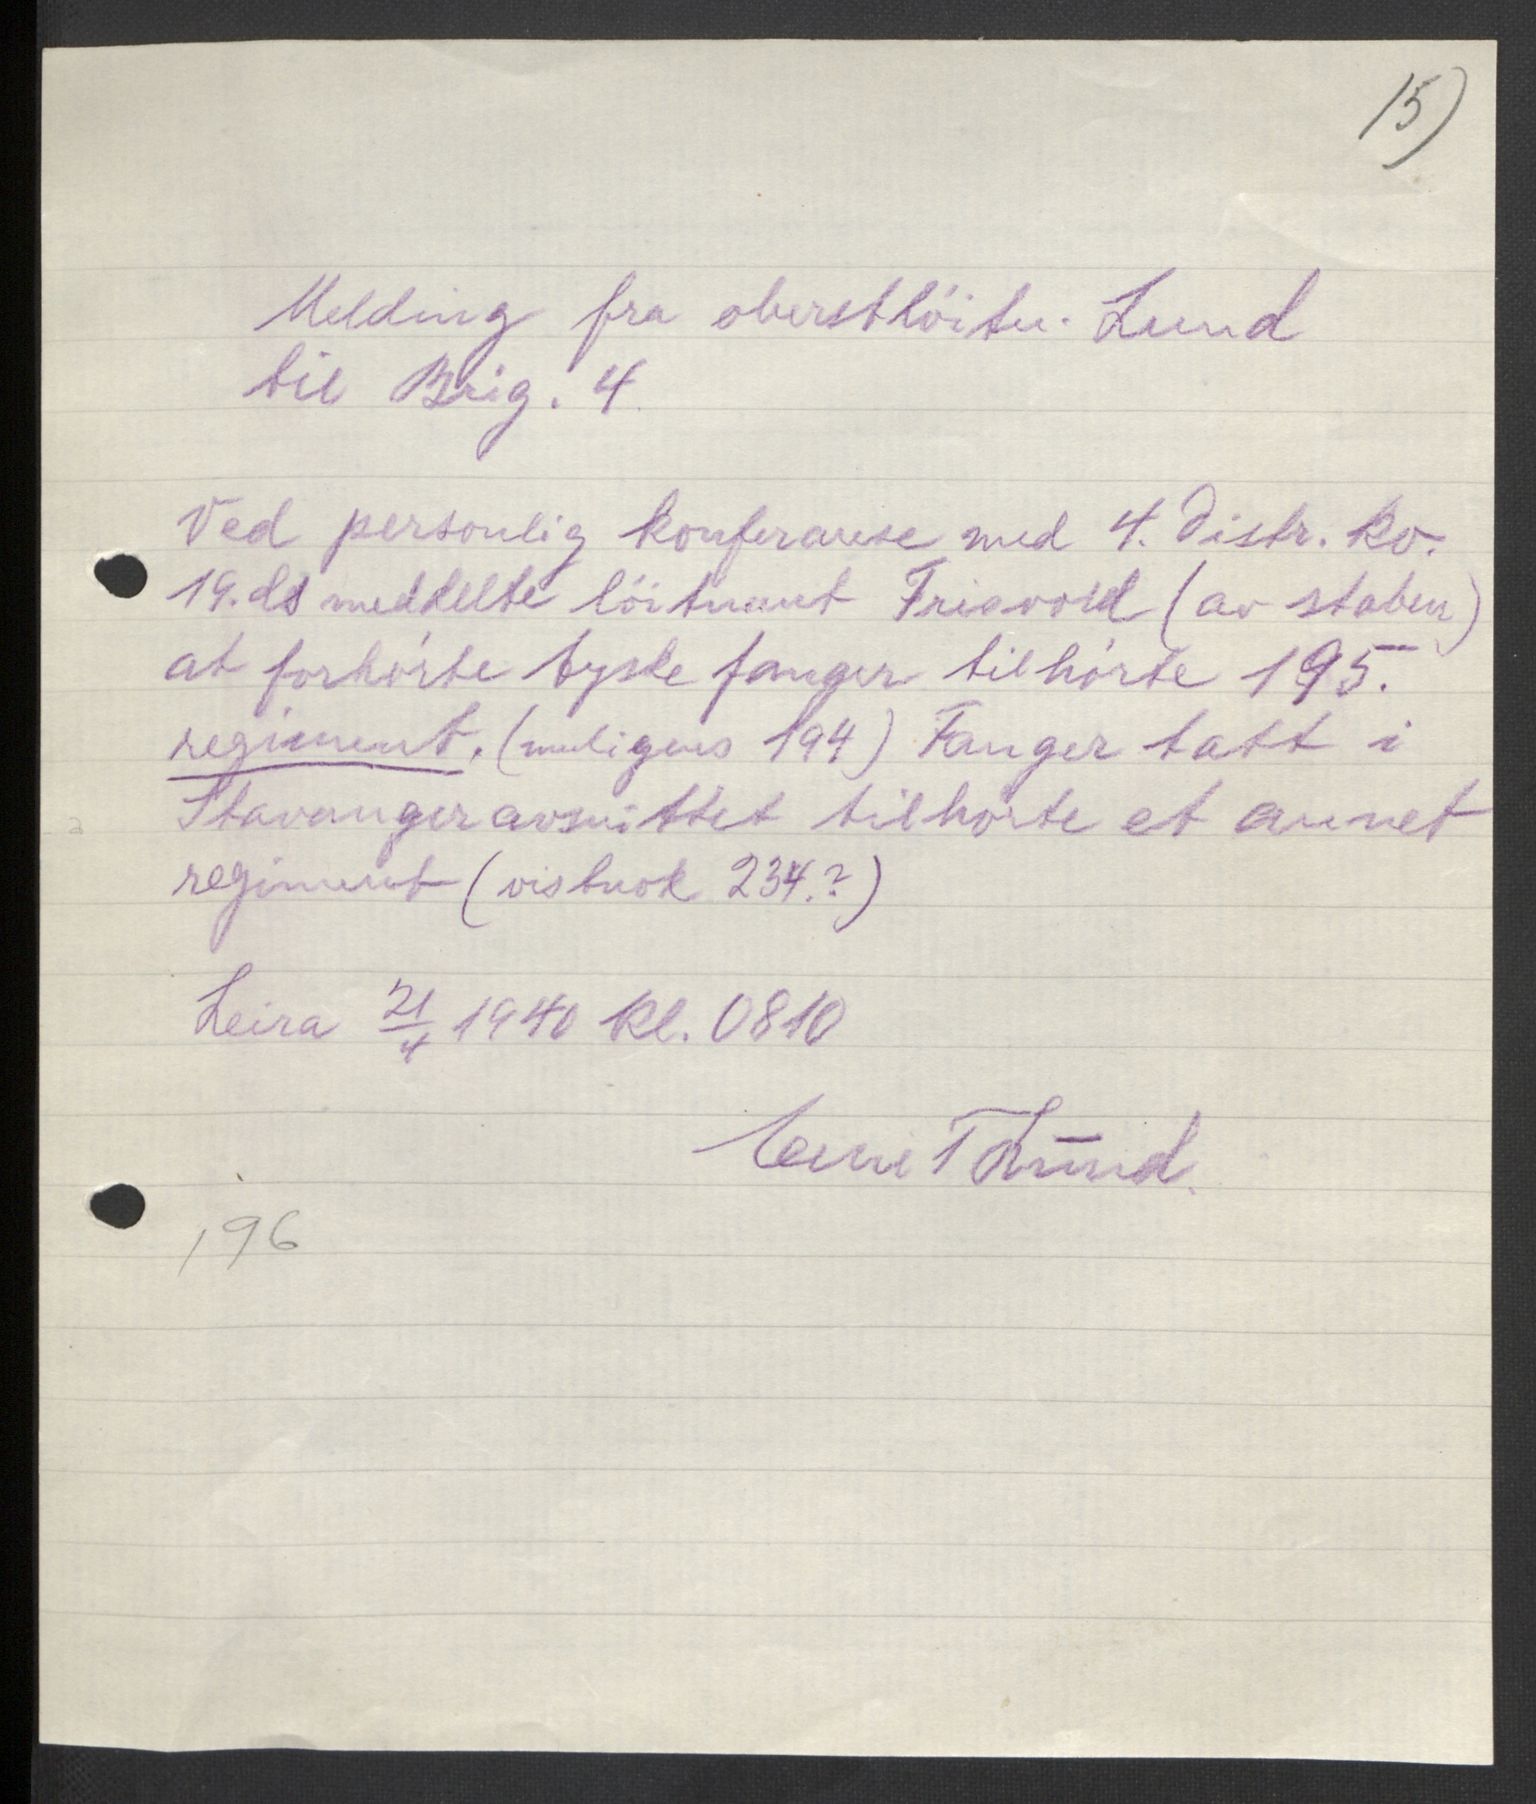 15)
Melding fra oberstlöitn. Lund
til Brig. 4.
Ved personlig konferanse med 4. Distr. ko.
19. ds meddelte löitnant Frisvold (av staben)
at forhörte tyske fanger tilhörte 195.
regiment. (muligens 194) Fanger tatt i
Stavangeravsnittet tilhörte et annet
regiment (vistnok 234.?)
Leira 21/4 1940 kl. 0810
Lund.
196